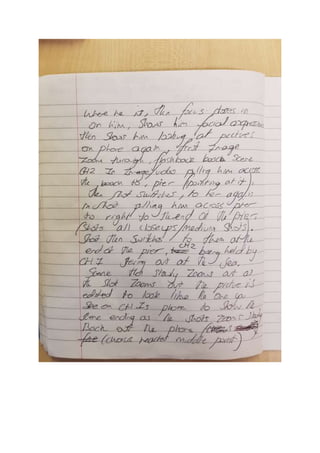 Where he is, then focus closes in
on him, shows him facial expression
then shows him looking at pictures
on phone again, first image
zoom through, flashback beach scene
CH2 in image/video pulling him across
the beach to pier (pointing at it).
then shot switches, to her again
in shot pulling him across pier
to right to the end of the pier.
(Shots all closeups/medium shots).
Shot then switches to them at the
end of the pier, CH2 being held by
CH1 staring out at the sea.
Same shot slowly zooms out as
the shot zooms out the picture is
edited to look like the one we
see on CH1s phone to show the
scene ending as the shots zooms slowly
Back out the phone
(chorus reached middle point)